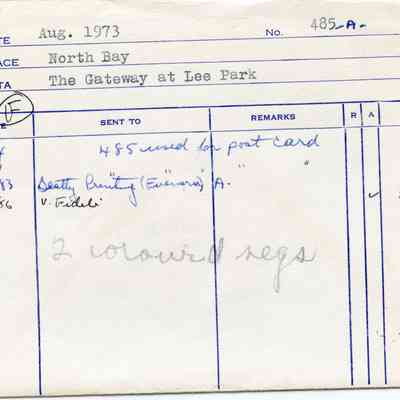 TE Aug. 1973 No. 485-A-
ACE North Bay
TA The Gateway at Lee Park
F
E SENT TO REMARKS R A
485 used for post card
83 Beatty Printing (Everaris) A. " "
86 V. Fideli ✓
2 coloured negs